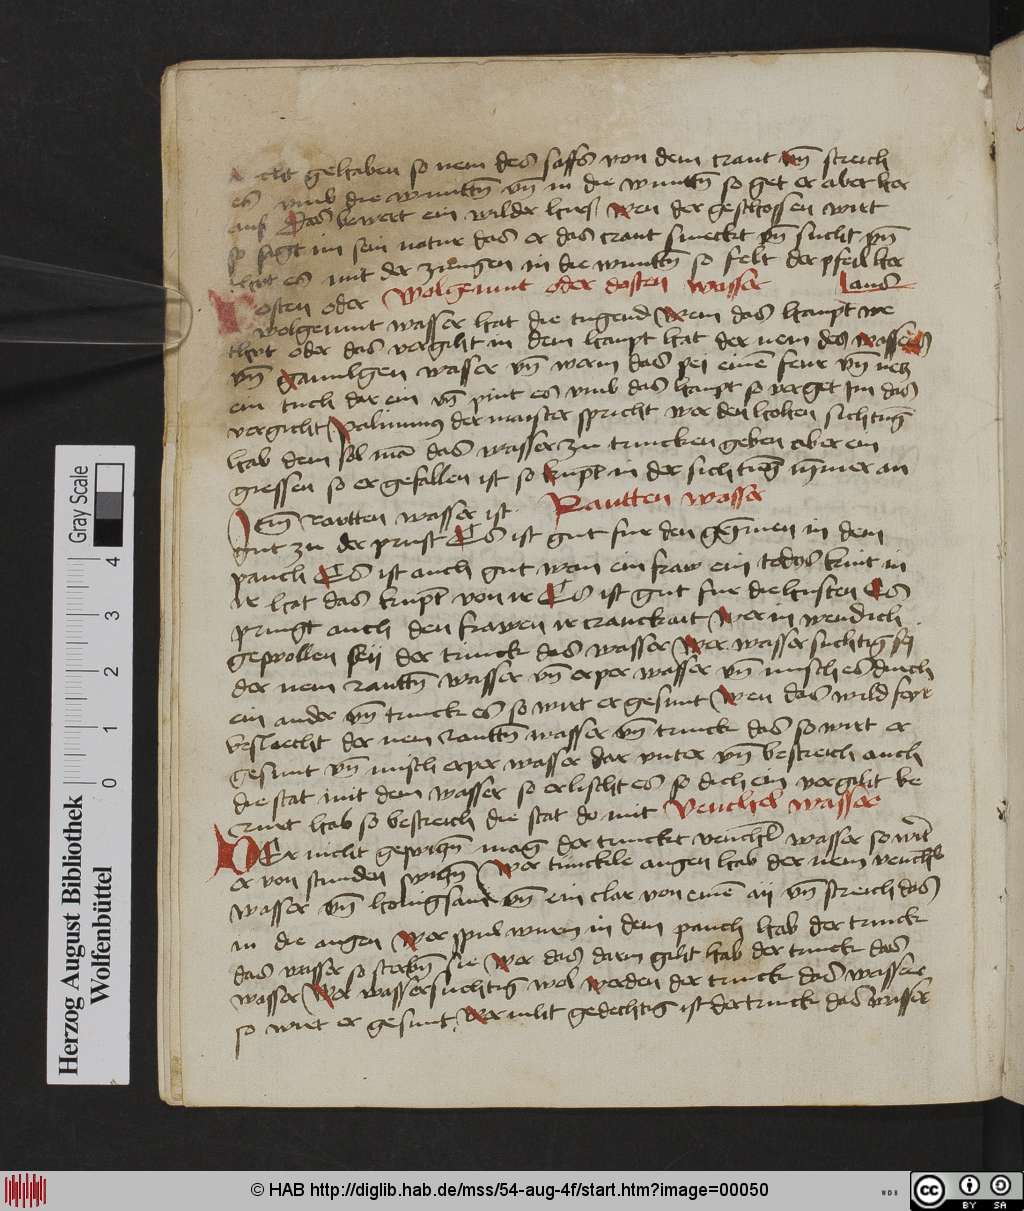 cht gehaben so nem des saffs von dem craut vn̄ streich
es vmb die wuntten vn̄ in die wuntten so get er aber her
auß Das bewert ein wilder hirs wen der geschossen wirt
so sagt im sein natur das er das craut smeckt vn̄ sucht vn̄
es mit der zungen in die wuntten so felt der pfeil her
auß
Dosten oder Wolgemut oder dosten wasser
wolgemut wasser hat die tugend Wem das haupt we
thut oder das vergiht in dem haupt hat der nem des wassers
vn̄ wasser vn̄ werm das pei einē feur vn̄ netz
ein tuch dar ein vn̄ pint es vmb das haupt so verget im das
vergicht Palimus der maister spricht wer den hohen sichtung
hab dem sol mā das wasser zu trincken geben aber ein
gressen so er gefallen ist so kupt in der sichtung nymer an
Rautten wasser
Item rautten wasser ist
gut zu der prust Es ist gut fur den gegruen in dem
pauch Es ist auch gut wan ein fraw ein todes kint in
ir hat das kupt von ir Es ist gut fur die husten Es
pringt auch den frawen ir cranckait Wer in wendich
geswollen seii der trinck das wasser Wer wassersuchtig sei
der nem rautten wasser vn̄ erper wasser vn̄ misch es durch
ein ander vn̄ trinck es so wirt er gesunt Wen das wild feyr
beslecht der nem rautten wasser vn̄ trinck das so wirt er
gesunt vn̄ misch erper wasser dar vnter vn̄ bestreich auch
die stat mit dem wasser so erlischt es so dich ein vergiht be
rurt hab so bestreich die stat do mit Venchel wasser
WEr nicht geswiczen mag der trincket venchel wasser so wirt
er von stunden swiczen Wer tunckle augen hab der nem venchel
wasser vn̄ honigsam vn̄ ein clar von einē aii vn̄ streich das
in die augen Wer spulwurm in dem pauch hab der trinck
das wasser so sterben sie Wer das darm giht hab der trinck das
wasser Wer wassersuchtig wol werden der trinck das wasser
so wirt er gesunt Wer niht gedechtig ist der trinck das wasser
Gray Scale
0 1 2 3 4
Herzog August Bibliothek
Wolfenbüttel
© HAB http://diglib.hab.de/mss/54-aug-4f/start.htm?image=00050
WDB
CC BY SA